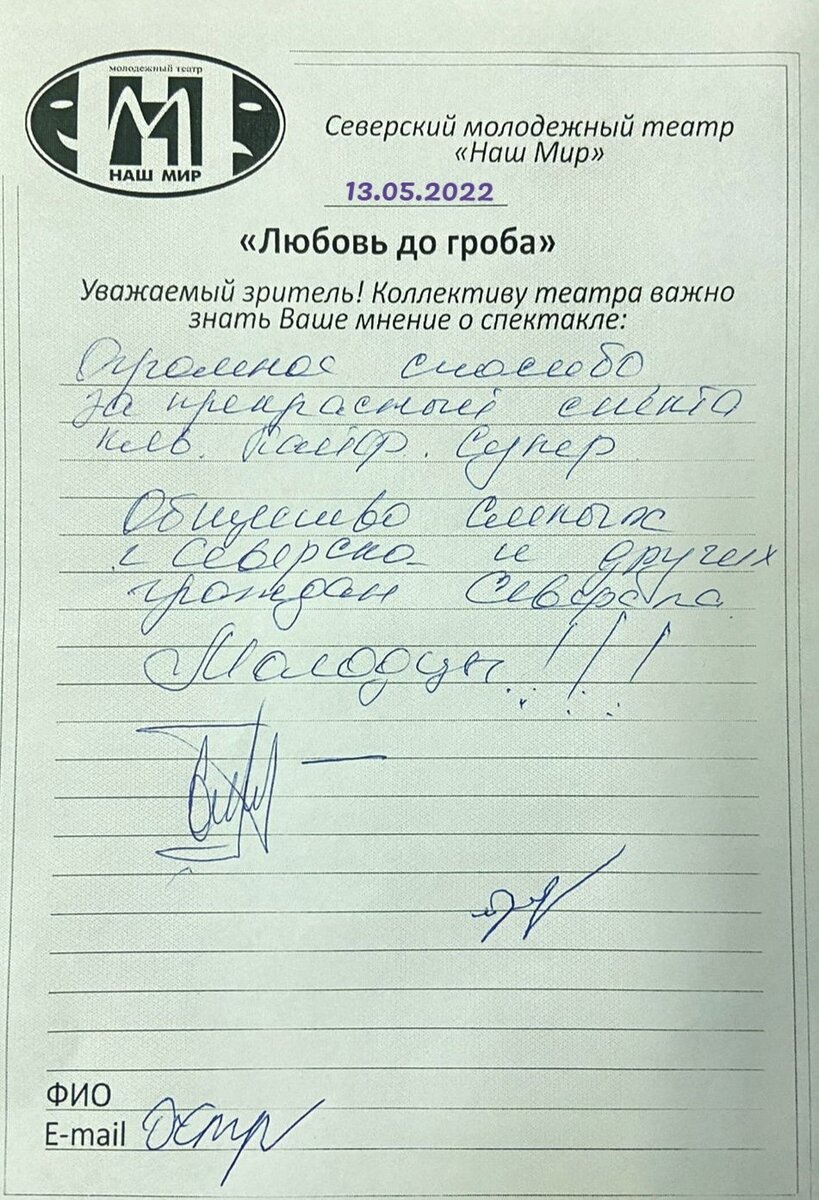 молодежный театр
НАШ МИР
Северский молодежный театр
«Наш Мир»
13.05.2022
«Любовь до гроба»
Уважаемый зритель! Коллективу театра важно
знать Ваше мнение о спектакле:
Огромное спасибо
за прекрасный спекта
кль. Кайф. Супер
Общество Слепых
г Северска и других
граждан Северска
Молодцы!!!
ФИО
E-mail